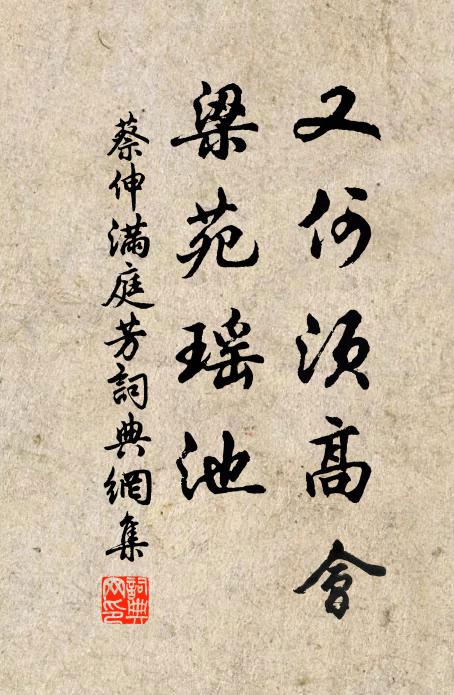 又何須高會
梁苑瑤池
蔡伸滿庭芳詞典網集
詞典网印